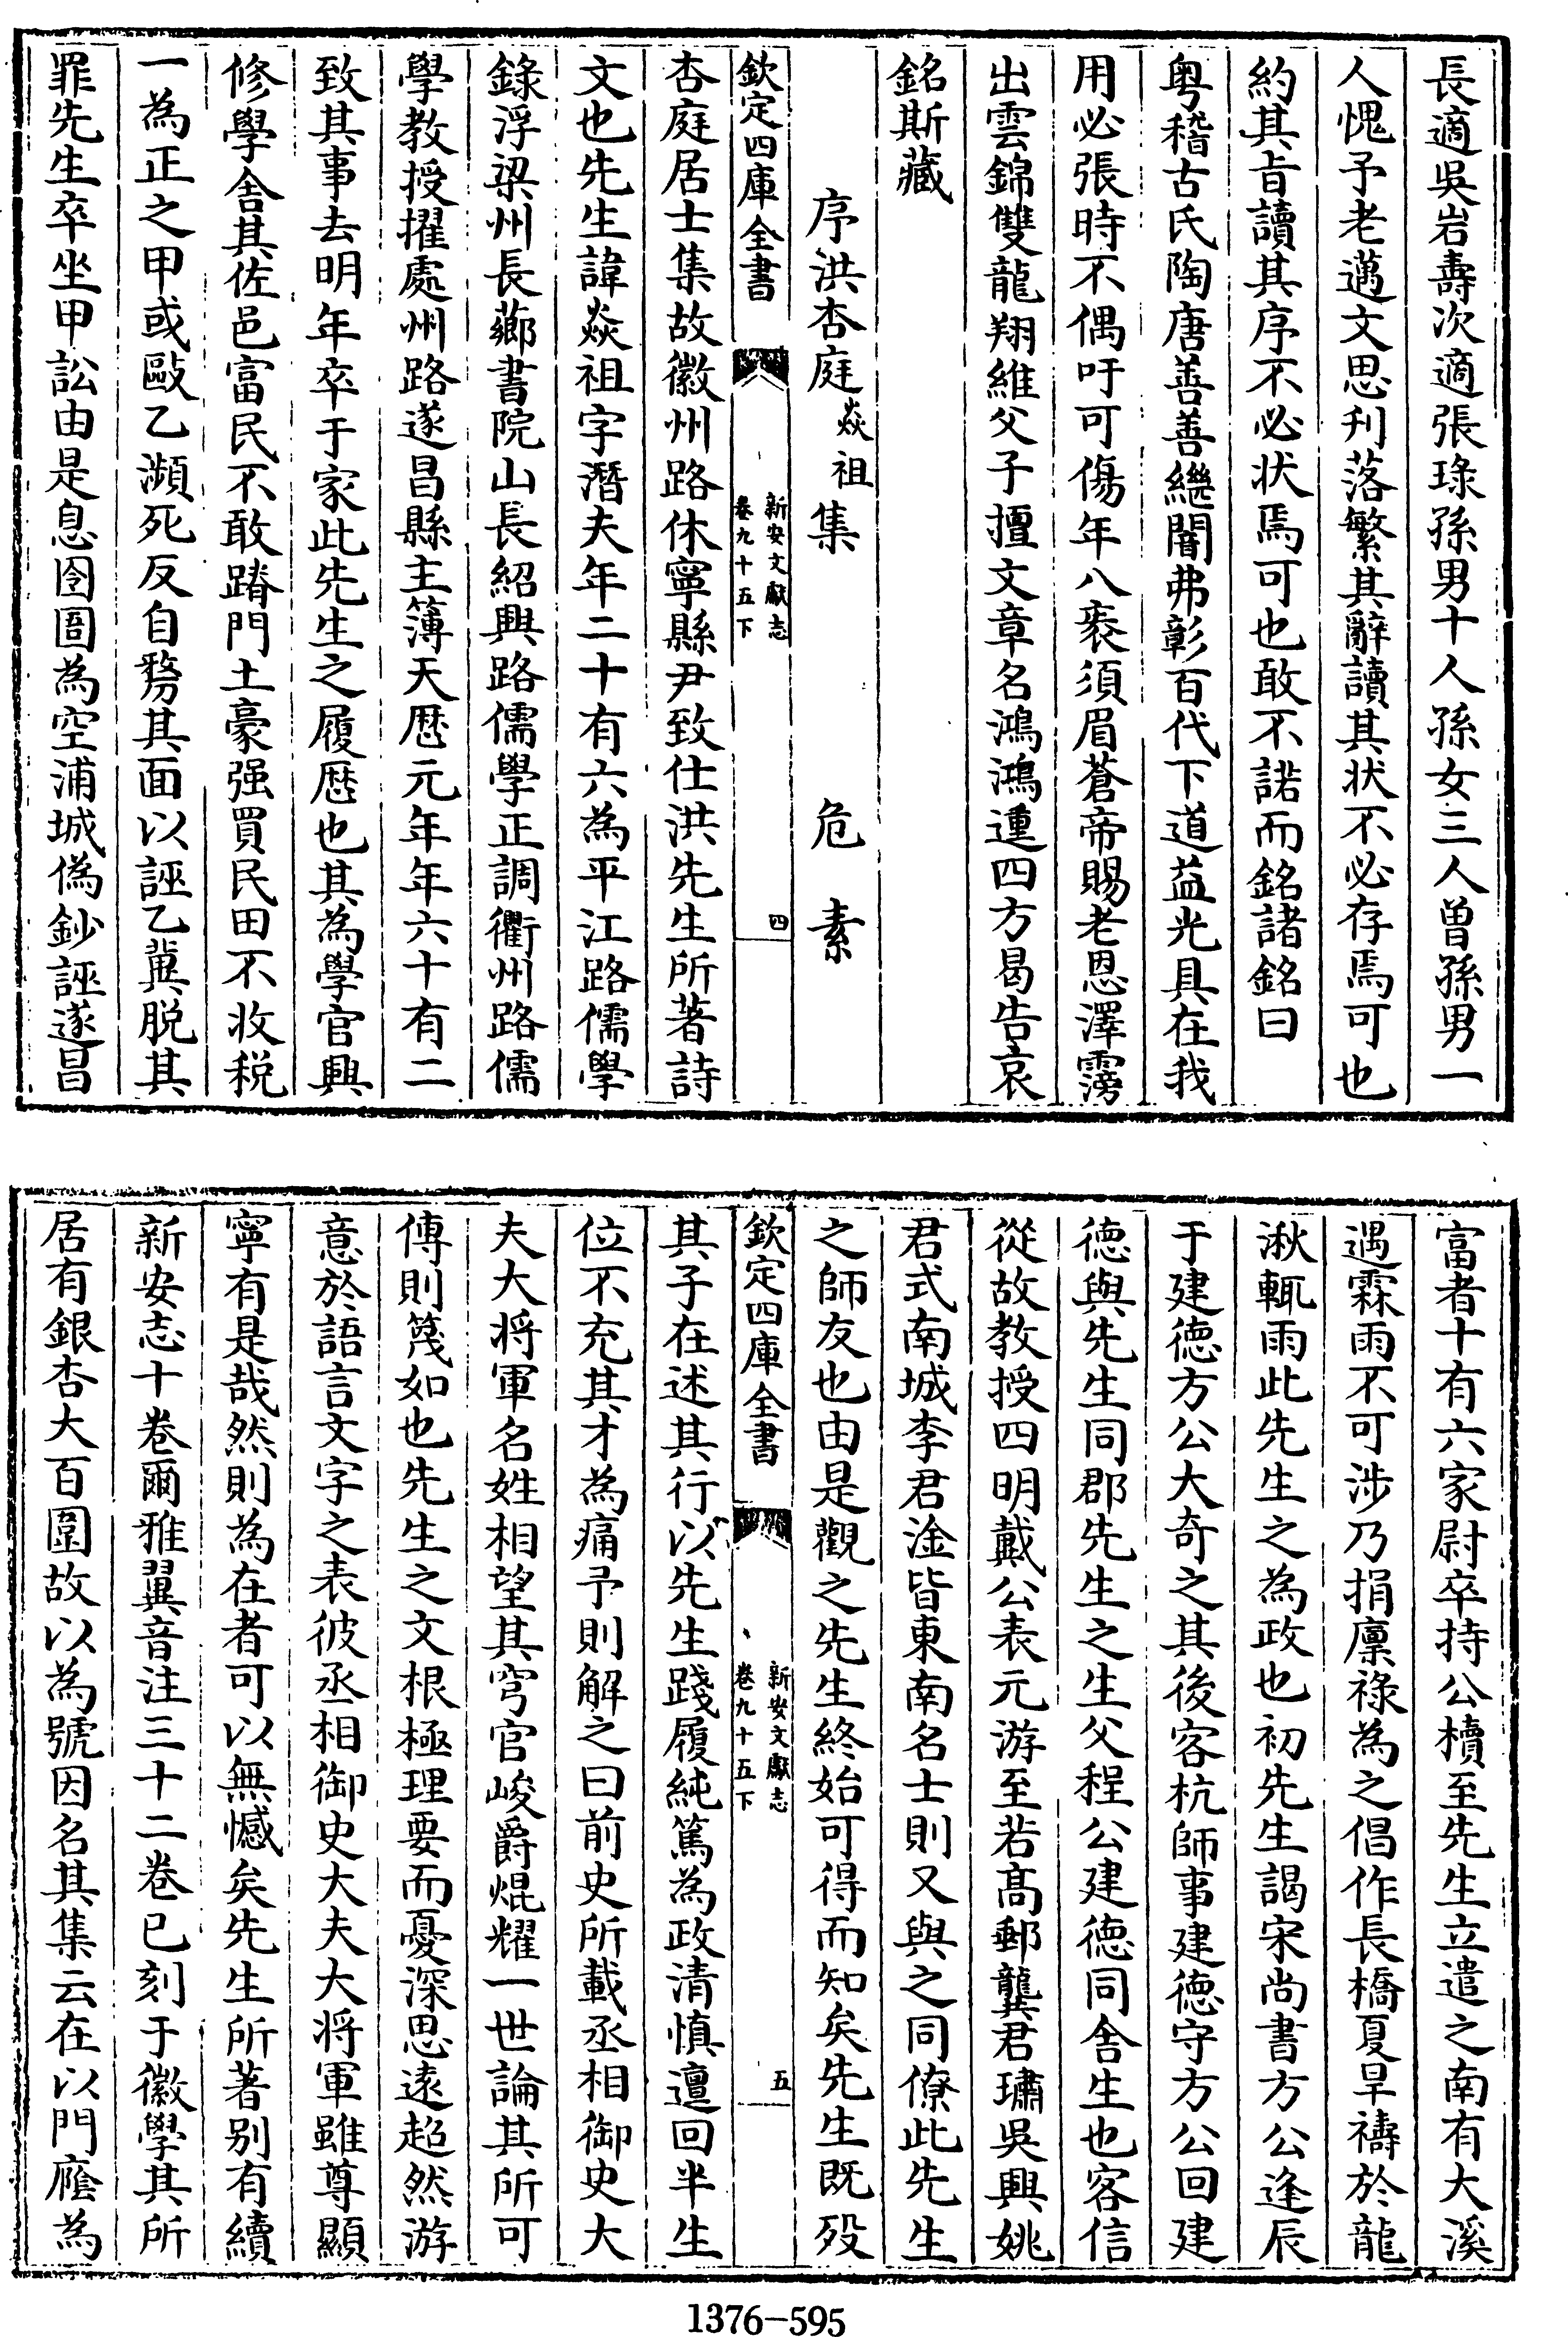 長適吳岩壽次適張琭孫男十人孫女三人曾孫男一
人愧予老邁文思刋落繁其辭讀其状不必存焉可也
約其㫖讀其序不必状焉可也敢不諾而銘諸銘曰
粤稽古氏陶唐善善繼闇弗彰百代下道益光具在我
用必張時不偶吁可傷年八袠須眉蒼帝賜老恩澤霶
出雲錦雙龍翔維父子擅文章名鴻鴻連四方曷告哀
銘斯藏
序洪杏庭焱祖集 危素
欽定四庫全書 新安文獻志 卷九十五下 四
杏庭居士集故徽州路休寧縣尹致仕洪先生所著詩
文也先生諱焱祖字潛夫年二十有六為平江路儒學
錄浮梁州長薌書院山長紹興路儒學正調衢州路儒
學教授擢處州路遂昌縣主簿天厯元年年六十有二
致其事去明年卒于家此先生之履厯也其為學官興
修學舍其佐邑富民不敢蹐門土豪强買民田不收税
一為正之甲或毆乙瀕死反自剺其面以誣乙冀脱其
罪先生卒坐甲訟由是息囹圄為空浦城偽鈔誣遂昌
富者十有六家尉卒持公櫝至先生立遣之南有大溪
遇霖雨不可涉乃捐廩祿為之倡作長橋夏旱禱於龍
湫輒雨此先生之為政也初先生謁宋尚書方公逢辰
于建徳方公大奇之其後客杭師事建徳守方公回建
徳與先生同郡先生之生父程公建徳同舍生也客信
從故教授四明戴公表元游至若髙郵龔君璛吳興姚
君式南城李君淦皆東南名士則又與之同僚此先生
之師友也由是觀之先生終始可得而知矣先生既殁
欽定四庫全書 新安文獻志 卷九十五下 五
其子在述其行以先生踐履純篤為政清慎邅回半生
位不充其才為痛予則解之曰前史所載丞相御史大
夫大将軍名姓相望其穹官峻爵焜耀一世論其所可
傳則篾如也先生之文根極理要而憂深思逺超然游
意於語言文字之表彼丞相御史大夫大将軍雖尊顯
寧有是哉然則為在者可以無憾矣先生所著别有續
新安志十卷爾雅翼音注三十二卷已刻于徽學其所
居有銀杏大百圍故以為號因名其集云在以門廕為
1376-595